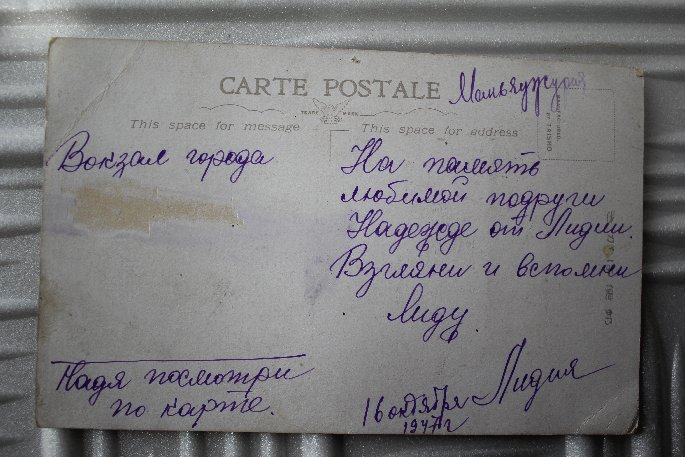 CARTE POSTALE
Маньчжурия
TRADE MARK
This space for message
This space for address
Вокзал города
На память
любимой подруги
Надежде от Лидии.
Взгляни и вспомни
Лиду.
Надя посмотри
по карте.
Лидия
16 октября